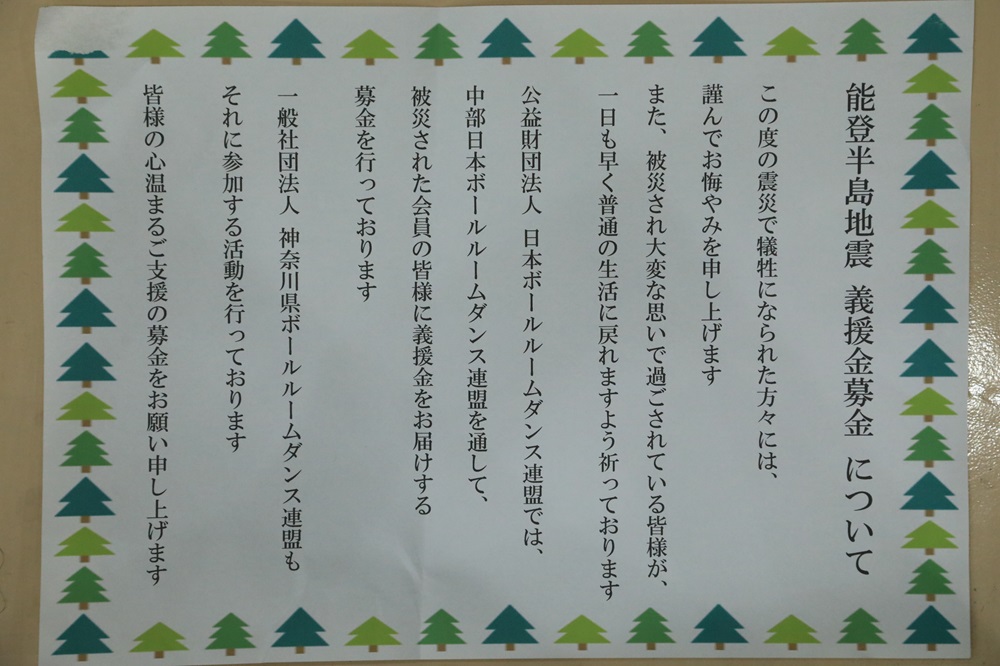 能登半島地震 義援金募金 について
この度の震災で犠牲になられた方々には、
謹んでお悔やみを申し上げます
また、被災され大変な思いで過ごされている皆様が、
一日も早く普通の生活に戻れますよう祈っております
公益財団法人 日本ボールルームダンス連盟では、
中部日本ボールルームダンス連盟を通して、
被災された会員の皆様に義援金をお届けする
募金を行っております
一般社団法人 神奈川県ボールルームダンス連盟も
それに参加する活動を行っております
皆様の心温まるご支援の募金をお願い申し上げます